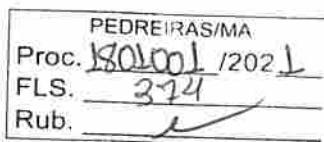 PEDREIRAS/MA
Proc. 1801001 /2021
FLS. 374
Rub.